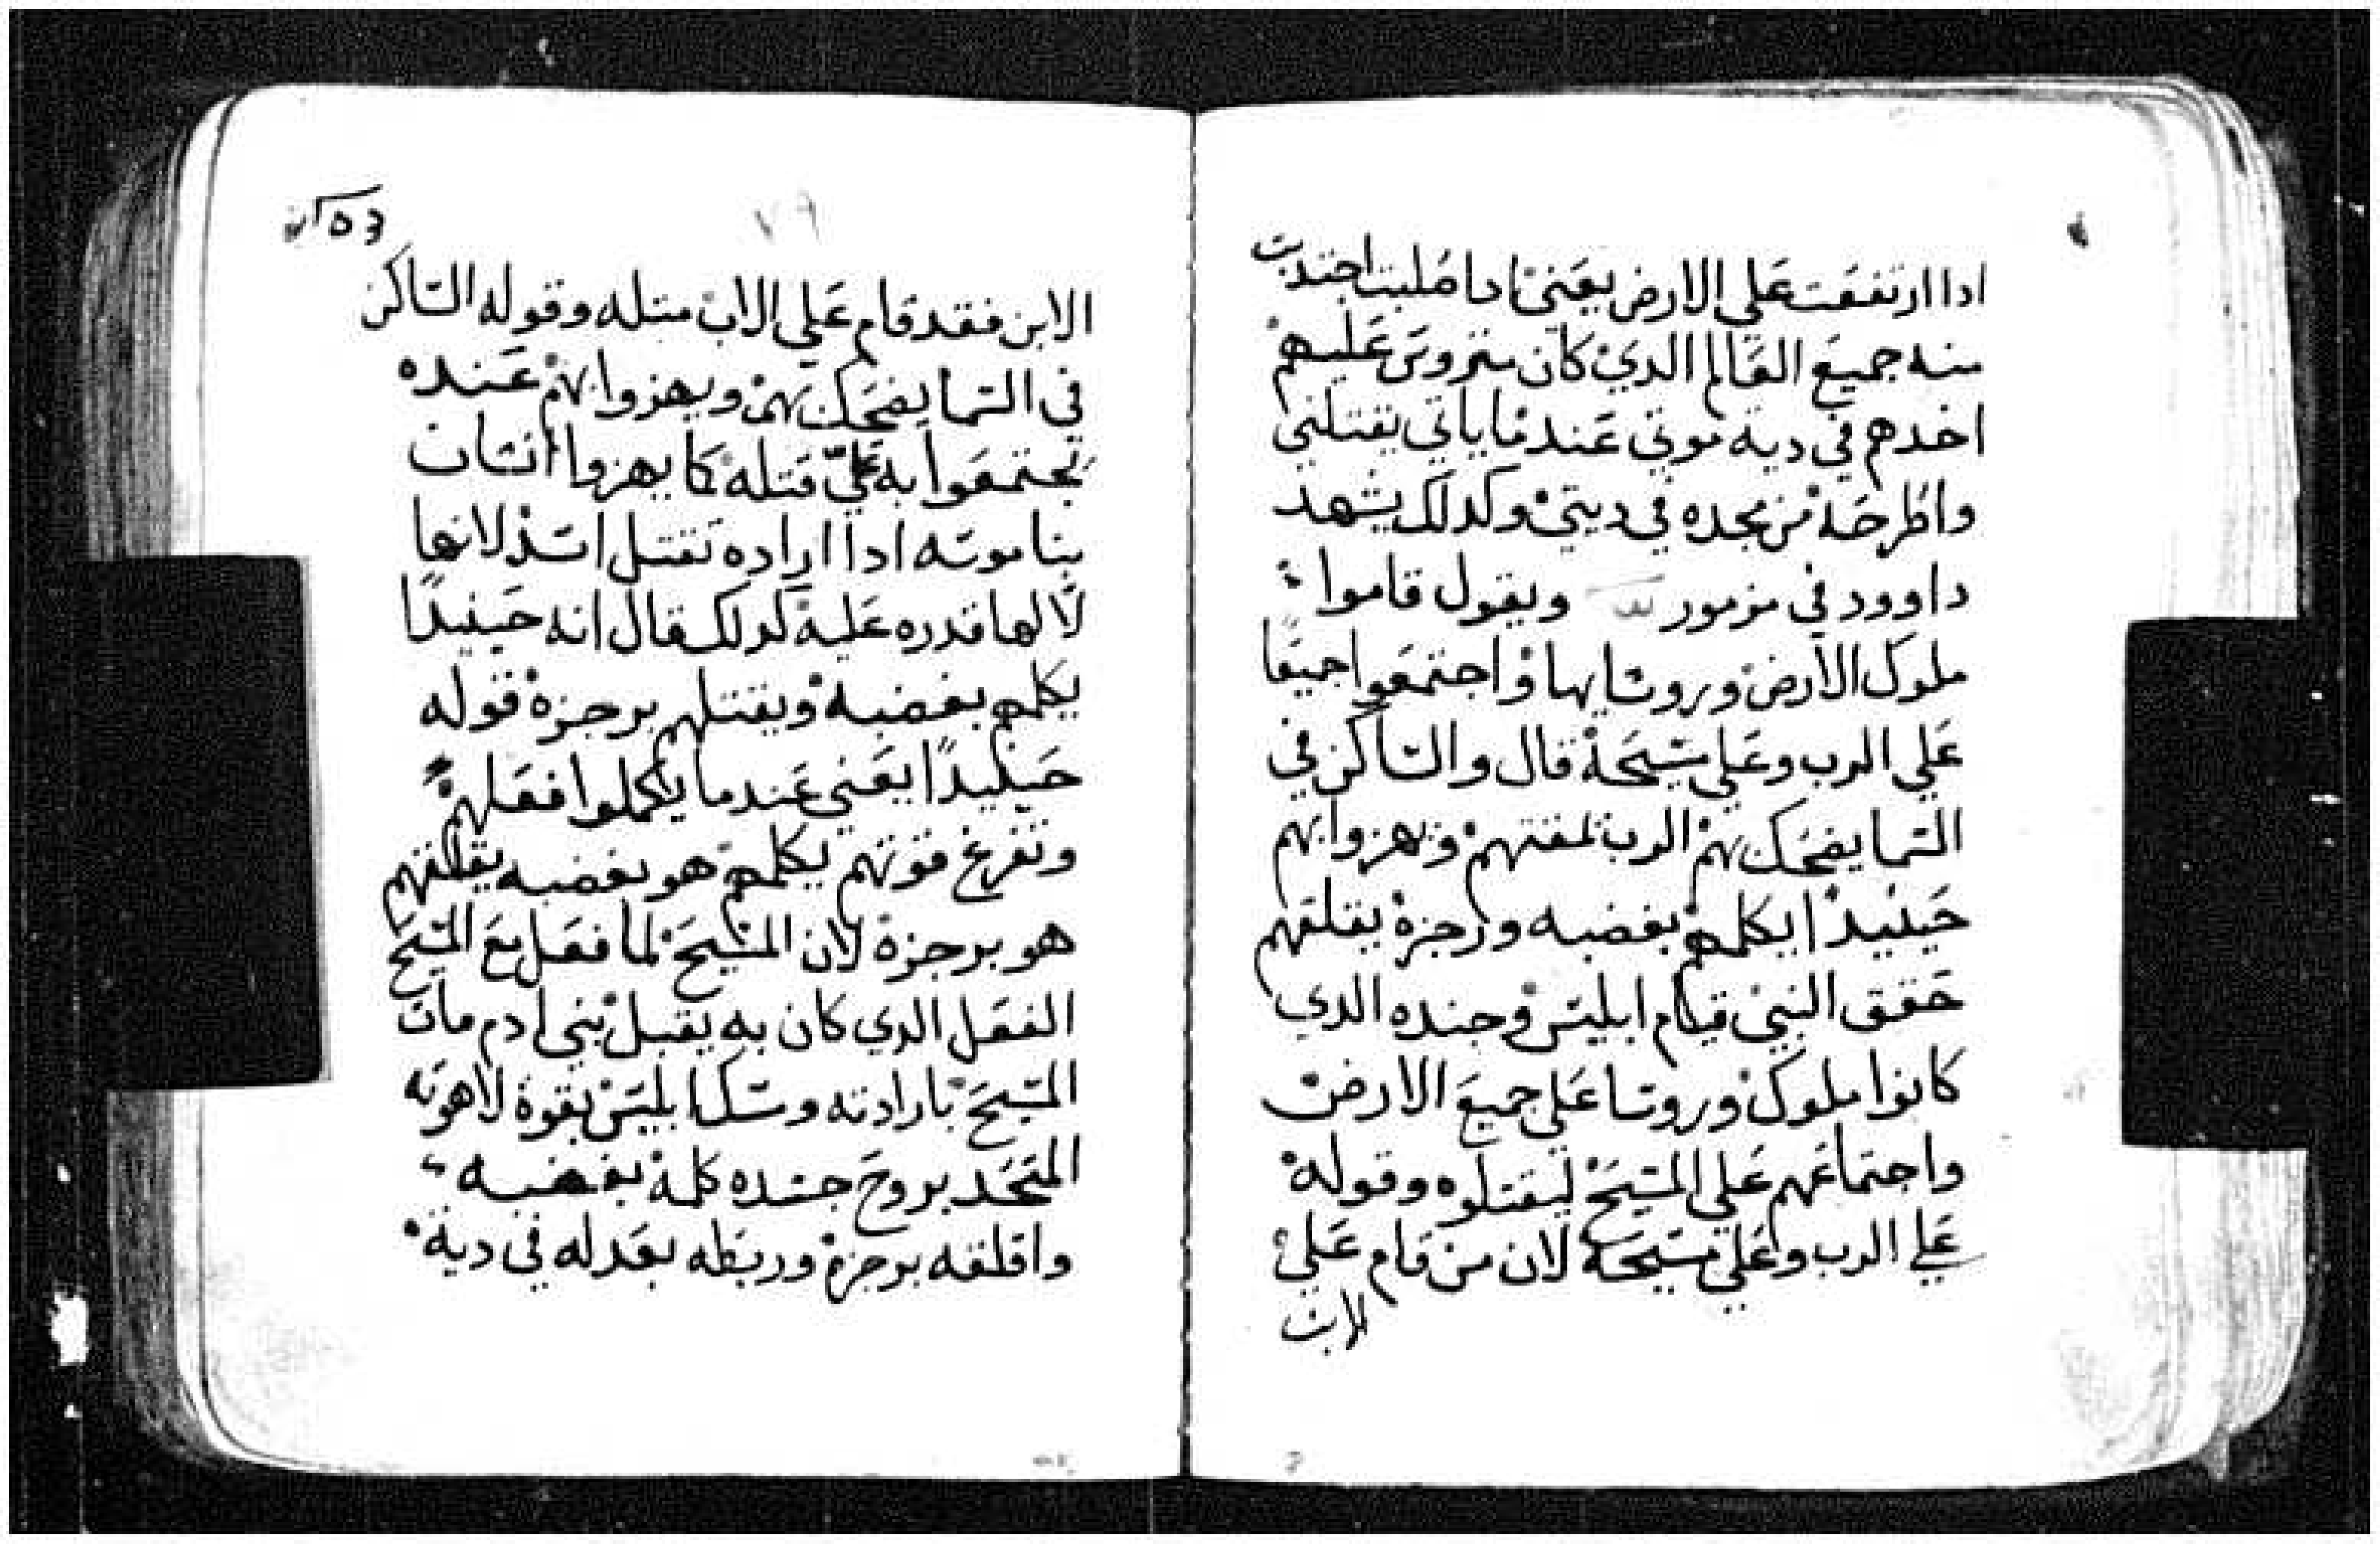 ادا ارتفعت علي الارض يعني ادا صلبت اجتدبت
منه جميع العالم الدي كان متروس عليهم
اخدهم في دية موتي عندما ياتي يقتلني
واطرحه من مجده في ديتي وكدلك يشهد
داوود في مزمور ويقول قاموا
ملوك الارض وروسايها واجتمعوا جميعا
علي الرب وعلي مسيحه قال والساكن في
السما يضحك بهم الرب يمقتهم ويهزوا بهم
حينيدا يكلمهم بغضبه ورجزه يقلقهم
حقق النبي قيام ابليس وجنده الدي
كانوا ملوك وروسا علي جميع الارض
واجتماعهم علي المسيح ليقتلوه وقوله
علي الرب وعلي مسيحه لان من قام علي
الابن
٧٩
الابن فقد قام علي الاب متله وقوله الساكن
في السما يضحك بهم ويهزوا بهم عنده
يجتمعوا به علي قتله كما يهزوا انسان
بناموسه ادا اراده تقتل اسد لانها
لا لها قدره عليه كدلك قال انه حينيدا
يكلمهم بغضبه ويقتلهم برجزه قوله
حينيدا يعني عندما يكملوا فعلهم
وتفرغ قوتهم يكلمهم هو بغضبه يقلقهم
هو برجزه لان المسيح لما فعل مع المسيح
الفعل الدي كان به يقبل بني ادم مات
المسيح بارادته ومسك ابليس بقوة لاهوته
المتحد بروح جسده كلمه بغضبه
واقلقه برجزه وربطه بعدله في دية